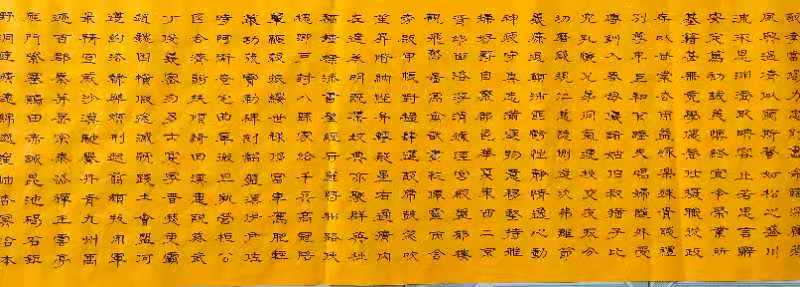 夙興溫凊似蘭斯馨如松之盛川
流不息淵澄取映容止若思言辭
安定篤初誠美慎終宜令榮業所
基籍甚無竟學優登仕攝職從政
存以甘棠去而益詠樂殊貴賤禮
別尊卑上和下睦夫唱婦隨外受
傅訓入奉母儀諸姑伯叔猶子比
兒孔懷兄弟同氣連枝交友投分
切磨箴規仁慈隱惻造次弗離節
義廉退顛沛匪虧性靜情逸心動
神疲守真志滿逐物意移堅持雅
操好爵自縻都邑華夏東西二京
背邙面洛浮渭據涇宮殿盤郁樓
觀飛驚圖寫禽獸畫彩仙靈丙舍
旁啟甲帳對楹肆筵設席鼓瑟吹
笙升階納陛弁轉疑星右通廣內
左達承明既集墳典亦聚群英杜
稿鍾隸漆書壁經府羅將相路俠
槐卿戶封八縣家給千兵高冠陪
輦驅轂振纓世祿侈富車駕肥輕
策功茂實勒碑刻銘磻溪伊尹佐
時阿衡奄宅曲阜微旦孰營桓公
匡合濟弱扶傾綺回漢惠說感武
丁俊乂密勿多士寔寧晉楚更霸
趙魏困橫假途滅虢踐土會盟何
遵約法韓弊煩刑起翦頗牧用軍
最精宣威沙漠馳譽丹青九州禹
跡百郡秦并嶽宗泰岱禪主云亭
雁門紫塞雞田赤城昆池碣石鉅
野洞庭曠遠綿邈巖岫杳冥治本